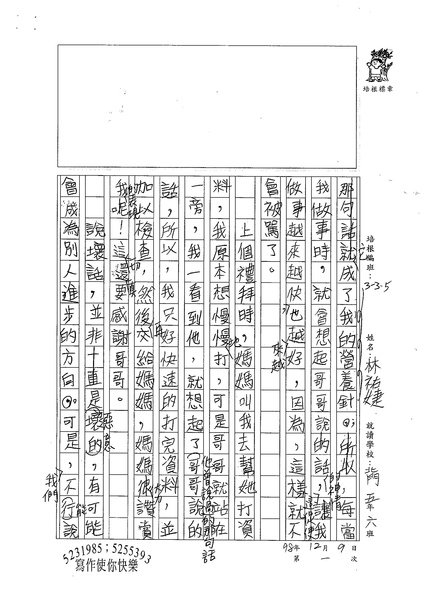 培根樵章
培根編班：3-3-5
姓名：林祐婕
就讀學校：
五年六班
98年12月9日
第一次
那句話就成了我的營養針。所以，每當
我做事時，就會想起哥哥說的話，讓我
做事越來越快也越好，因為，這樣就不
會被罵了。
上個禮拜時，媽媽叫我去幫她打資
料，我原本想慢慢地打，可是哥哥就站在
一旁，我一看到他，就想起了哥哥說的
他曾說過的那句話
話，所以，我只好快速的打完資料，並
加以檢查，然後再交給媽媽，媽媽很讚賞
我呢！這還要感謝哥哥。
說壞話，並非一直是壞的，有可能
惡意
會成為別人進步的方向。可是，不行說
我們
能
5231985；5255393
寫作使你快樂